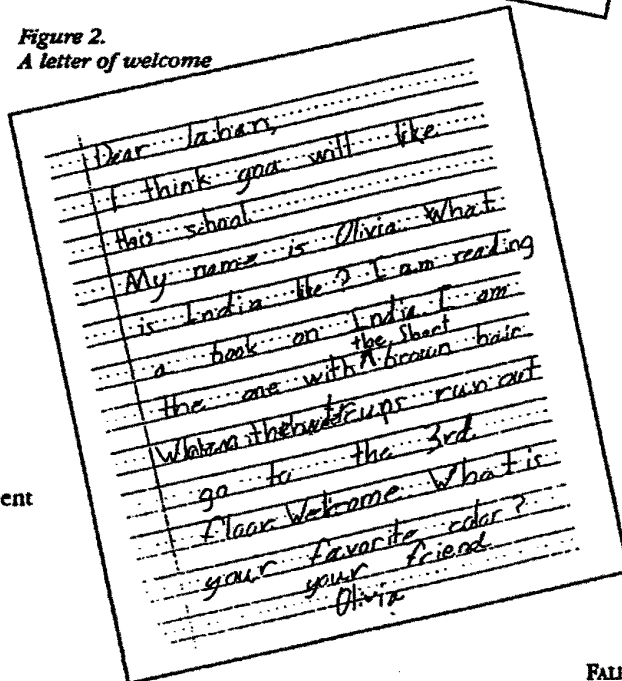 Figure 2.
A letter of welcome
Dear Iaban,
I think you will like
this school
My name is Olivia What
is India like? I am reading
a book on India. I am
the short
the one with ^ brown hair
When the water cups run out
go to the 3rd
floor Welcome What is
your favorite color?
your friend
Olivia
ent
FALL